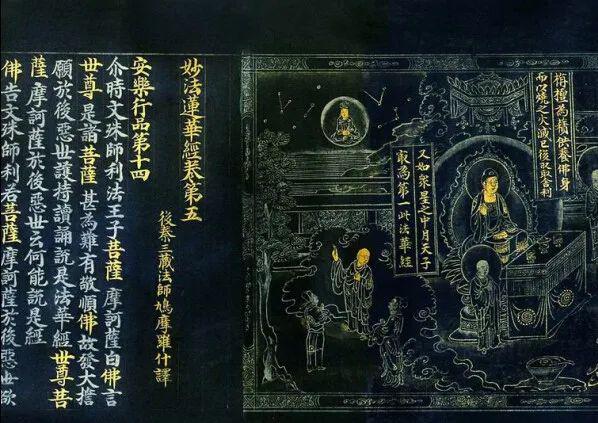 栴檀為𧂐供養佛身
而以燒之火滅已後収取舍利
又如衆星之中月天子
㝡為第一此法華經
妙法蓮華經卷第五
後秦三藏法師鳩摩羅什譯
安樂行品第十四
尒時文殊師利法王子菩薩摩訶薩白佛言
世尊是諸菩薩甚為難有敬順佛故發大誓
願於後惡世護持讀誦說是法華經世尊菩
薩摩訶薩於後惡世云何能說是經
佛告文殊師利若菩薩摩訶薩於後惡世欲